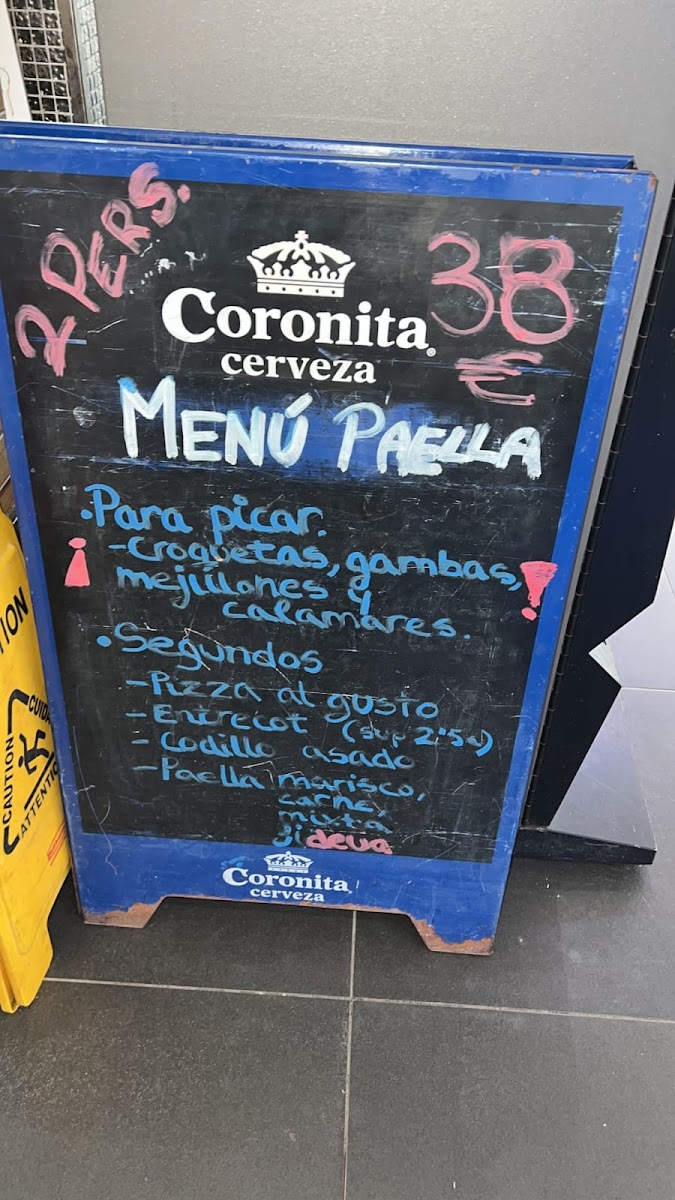 2 PERS.
38
€
Coronita
cerveza
MENÚ PAELLA
• Para picar.
¡ -Croquetas, gambas, !
mejillones y
calamares.
• Segundos
-Pizza al gusto
-Entrecot (sup 2'5€)
-Codillo asado
-Paella marisco,
carne,
mixta
fideua
Coronita
cerveza
CAUTION
CAUTION
ATTENTION